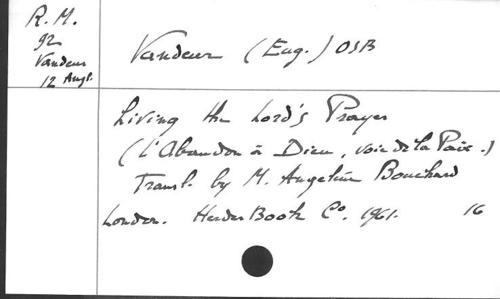 R. M.
92
Vandeur
12 Angl.
Vandeur (Eug.) OSB
Living the Lord's Prayer
(L'Abandon à Dieu, voie de la Paix.)
Transl. by M. Angeline Bouchard
London. Herder Book Co. 1961. 16